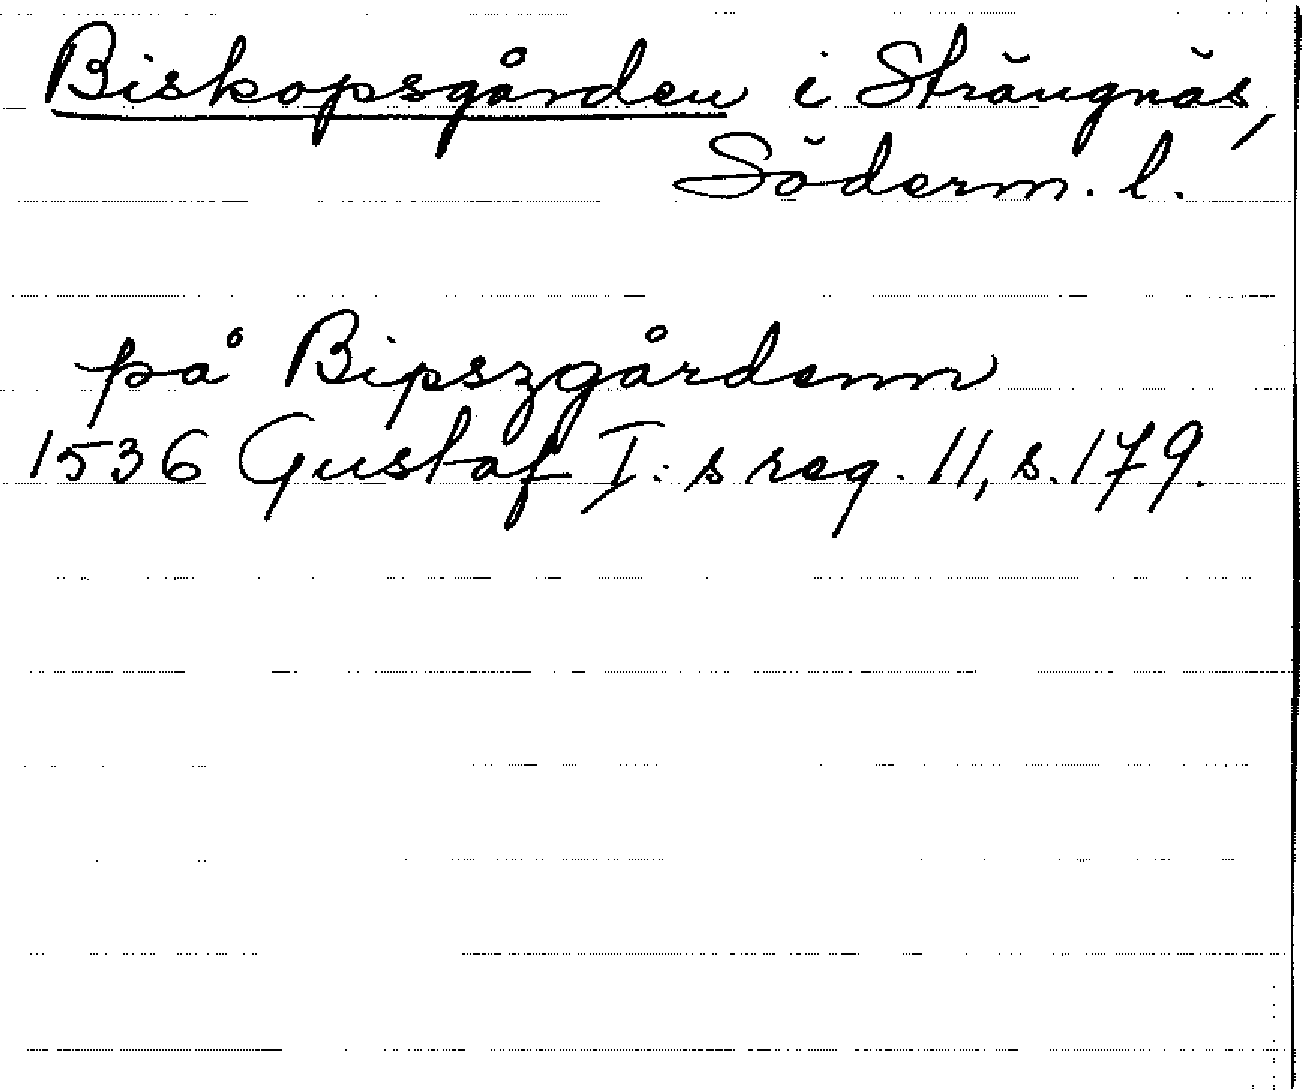 Biskopsgården i Strängnäs,
Söderm. l.
på Bipszgårdenn
1536 Gustaf I:s reg. 11, s. 179.